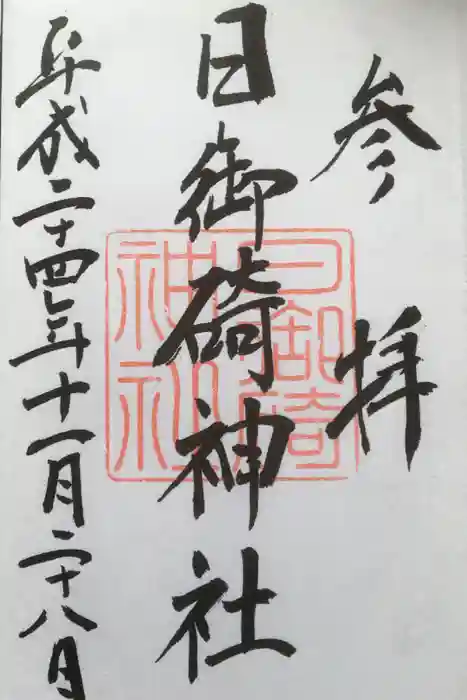 参拝
日御碕神社
日御碕
神社
平成二十四年十一月二十八日